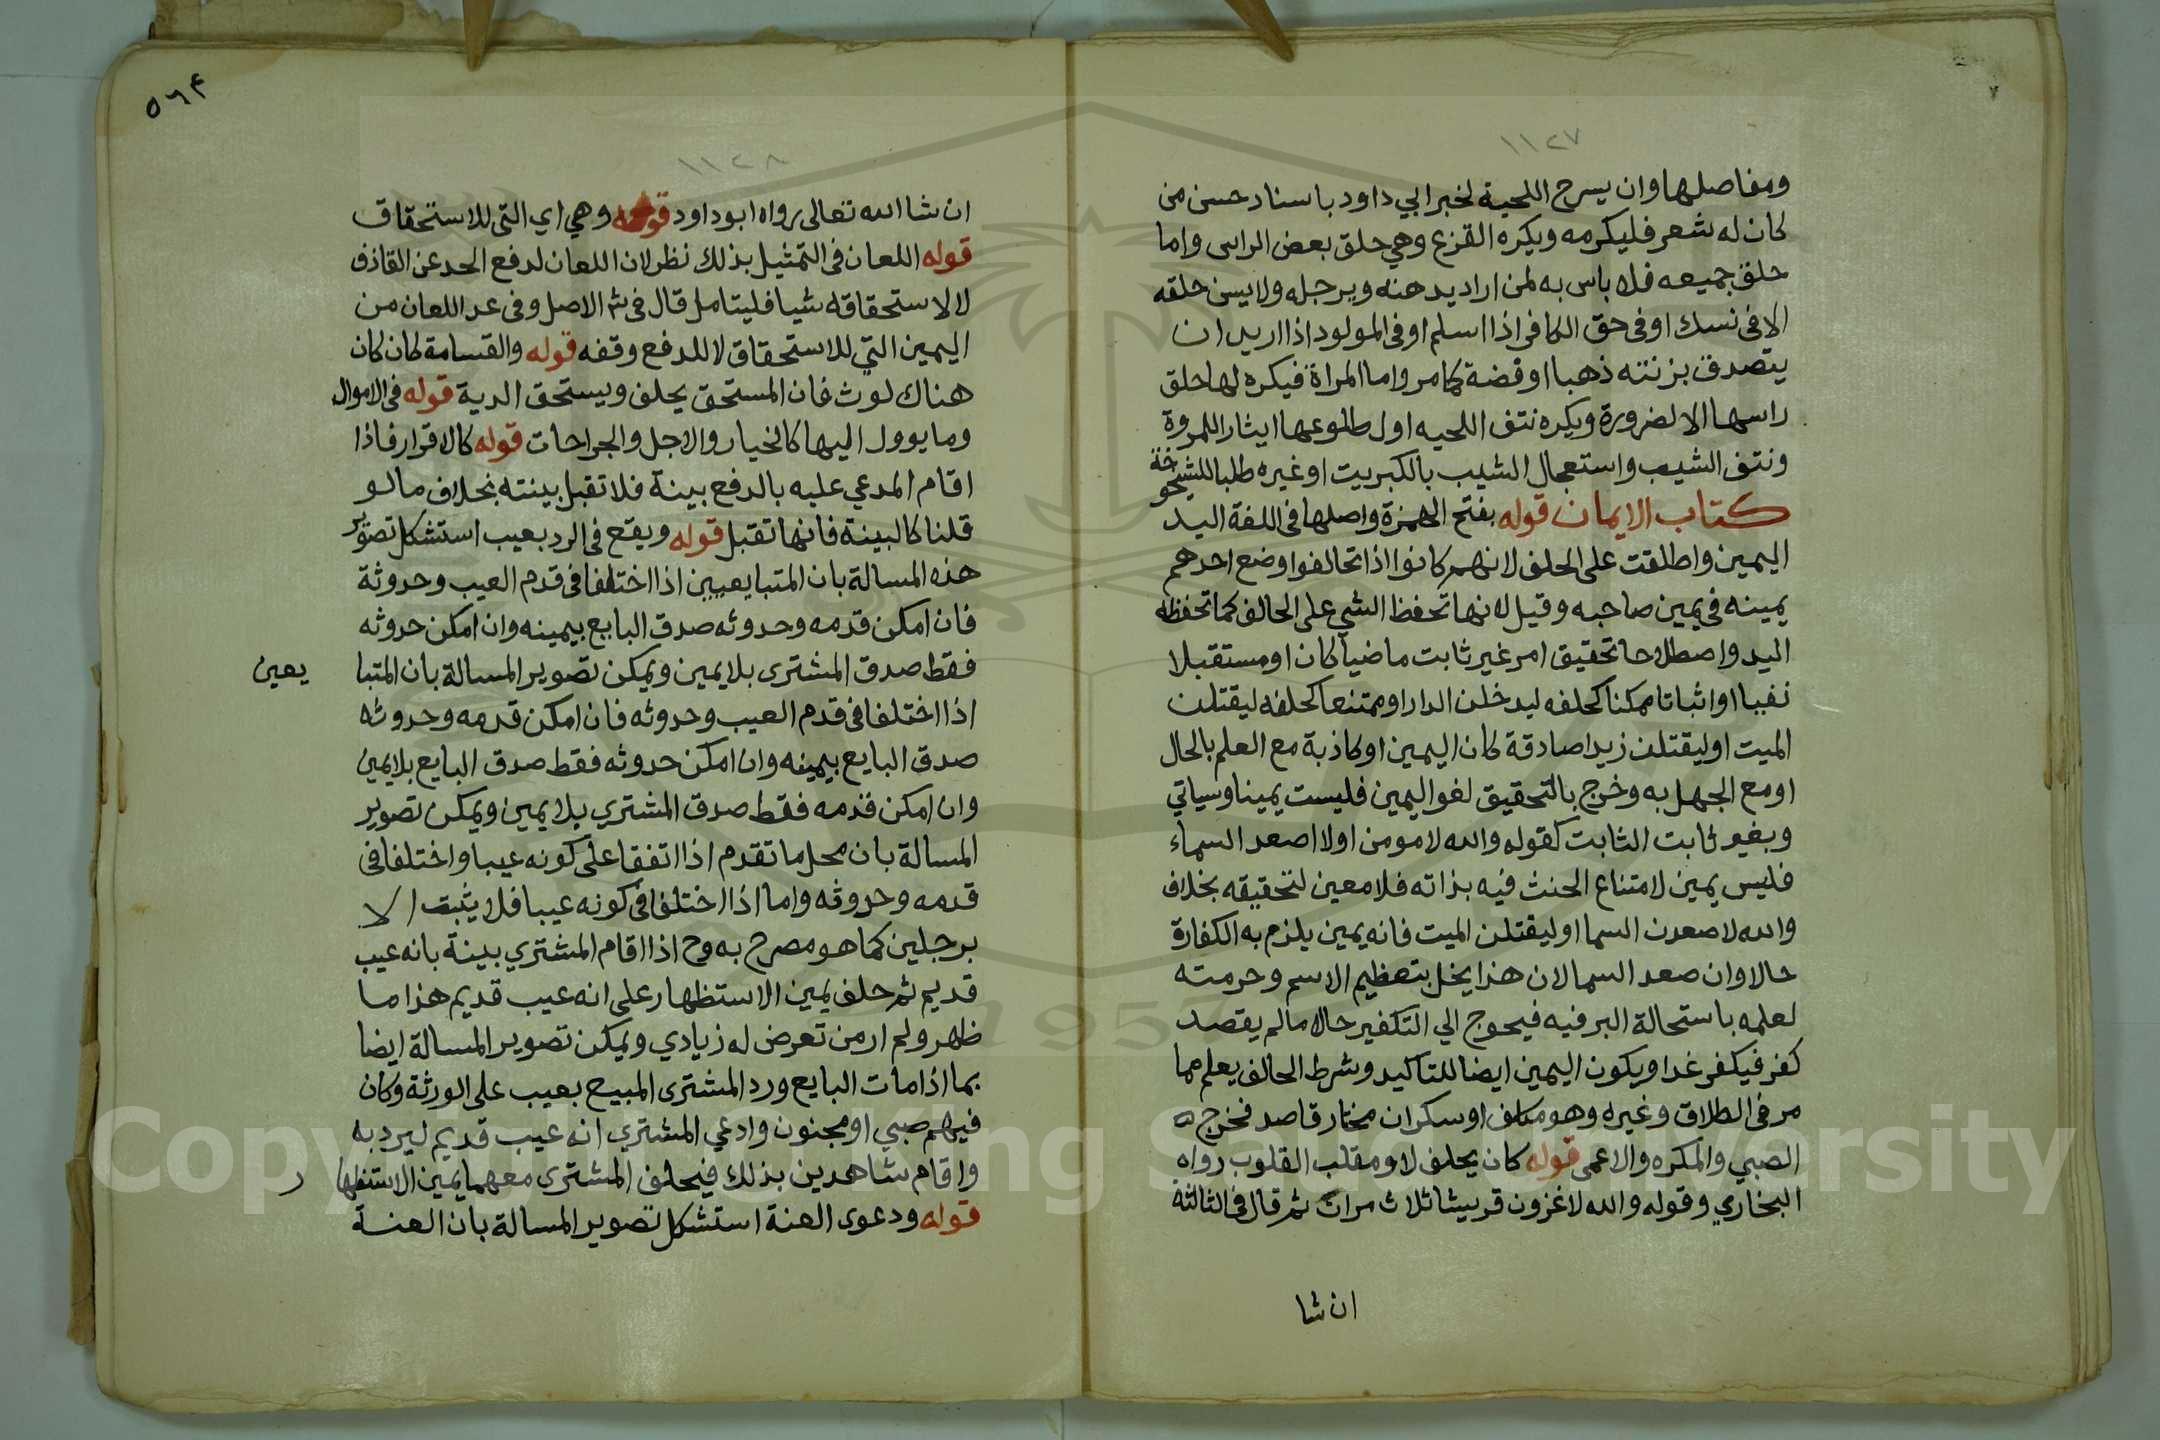 ١١٢٧
ومفاصلها وان يسرح اللحية لخبر ابي داود باسناد حسن من
كان له شعر فليكرمه ويكره القزع وهي حلق بعض الراس واما
حلق جميعه فلا باس به لمن اراد يدهنه ويرجله ولا يسن حلقه
الا في نسك او في حق الكافر اذا اسلم او في المولود اذا اريد ان
يتصدق بزنته ذهبا او فضة كما مر واما المراة فيكره لها حلق
راسها الا لضرورة ويكره نتف اللحيه اول طلوعها ايثارا للمروة
ونتف الشيب واستعجال الشيب بالكبريت او غيره طلبا للشيخوخة
كتاب الايمان قوله بفتح الهمزة واصلها في اللغة اليد
اليمين واطلقت على الحلف لانهم كانوا اذا تحالفوا وضع احدهم
يمينه في يمين صاحبه وقيل لانها تحفظ الشي على الحالف كما تحفظه
اليد واصطلاحا تحقيق امر غير ثابت ماضيا كان او مستقبلا
نفيا او اثباتا ممكنا كحلفه ليدخلن الدار او ممتنعا كحلفه ليقتلن
الميت او ليقتلن زيدا صادقة كان اليمين او كاذبة مع العلم بالحال
او مع الجهل به وخرج بالتحقيق لغو اليمين فليست يمينا وسياتي
وبغير ثابت الثابت كقوله والله لاموتن او لا اصعد السماء
فليس يمين لامتناع الحنث فيه بذاته فلا معين لتحقيقه بخلاف
والله لاصعدن السما او ليقتلن الميت فانه يمين يلزم به الكفارة
حالا وان صعد السما لان هذا يخل بتعظيم الاسم وحرمته
لعلمه باستحالة البر فيه فيحوج الي التكفير حالا ما لم يقصد
كفر فيكفر غدا ويكون اليمين ايضا للتاكيد وشرط الحالف يعلم مما
مر في الطلاق وغيره وهو مكلف او سكران مختار قاصد فخرج
الصبي والمكره والاعمى قوله كان يحلف لا ومقلب القلوب رواه
البخاري وقوله والله لاغزون قريشا ثلاث مرات ثم قال في الثالثة
ان شا
٥٦٤
١١٢٨
ان شا الله تعالى رواه ابو داود قوله وهي اي التي للاستحقاق
قوله اللعان في التمثيل بذلك نظر لان اللعان لدفع الحد عن القاذف
لا لاستحقاقه شيا فليتامل قال في ش الاصل وفي عد اللعان من
اليمين التي للاستحقاق لا للدفع وقفه قوله والقسامة كان كان
هناك لوث فان المستحق يحلف ويستحق الدية قوله في الاموال
وما يوول اليها كالخيار والاجل والجراحات قوله كالاقرار فاذا
اقام المدعي عليه بالدفع بينة فلا تقبل بينته بخلاف ما لو
قلنا كالبينة فانها تقبل قوله ويقع في الرد بعيب استشكل تصوير
هذه المسالة بان المتبايعيين اذا اختلفا في قدم العيب وحدوثة
فان امكن قدمه وحدوثه صدق البايع بيمينه وان امكن حدوثه
فقط صدق المشتري بلا يمين ويمكن تصوير المسالة بان المتبا يعين
اذا اختلفا في قدم العيب وحدوثه فان امكن قدمه وحدوثه
صدق البايع بيمينه وان امكن حدوثه فقط صدق البايع بلا يمين
وان امكن قدمه فقط صدق المشتري بلا يمين ويمكن تصوير
المسالة بان محل ما تقدم اذا اتفقا على كونه عيبا واختلفا في
قدمه وحدوثه واما اذا اختلفا في كونه عيبا فلا يثبت الا
برجلين كما هو مصرح به وح اذا اقام المشتري بينة بانه عيب
قديم ثم حلف يمين الاستظهار على انه عيب قديم هذا ما
ظهر ولم ار من تعرض له زيادي ويمكن تصوير المسالة ايضا
بما اذا مات البايع ورد المشتري المبيع بعيب على الورثة وكان
فيهم صبي او مجنون وادعي المشتري انه عيب قديم ليرد به
واقام شاهدين بذلك فيحلف المشتري معهما يمين الاستظها ر
قوله ودعوى العنة استشكل تصوير المسالة بان العنة
Copyright © King Saud University
1957